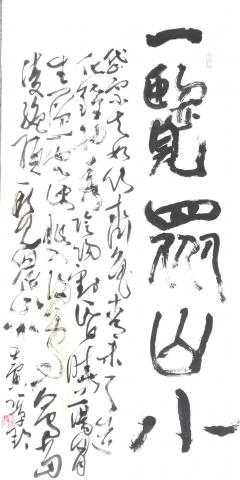 一覽眾山小
岱宗夫如何齊魯青未了造
化鍾神秀陰陽割昏曉盪胸
生曾雲決眥入歸鳥會當
凌絕頂一覽眾山小 壬寅